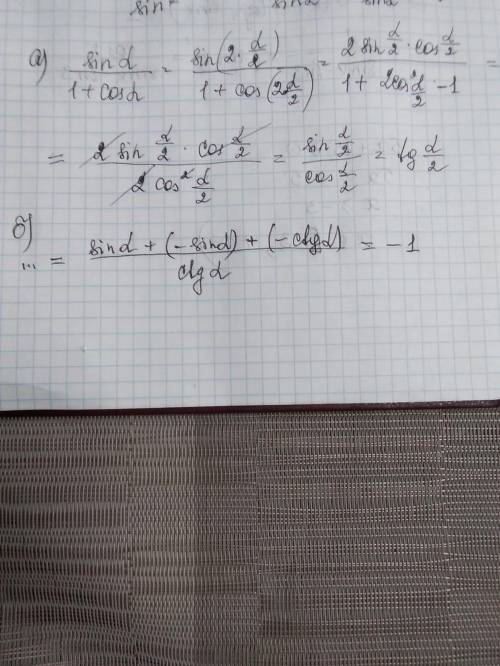 sin² sinα sinα
а) sinα / (1 + cosα) = sin(2·α/2) / (1 + cos(2α/2)) = 2 sin α/2 · cos α/2 / (1 + 2cos² α/2 - 1) =
= 2 sin α/2 · cos α/2 / (2 cos² α/2) = sin α/2 / cos α/2 = tg α/2
б)
... = (sinα + (-sinα) + (-ctgα)) / ctgα = -1